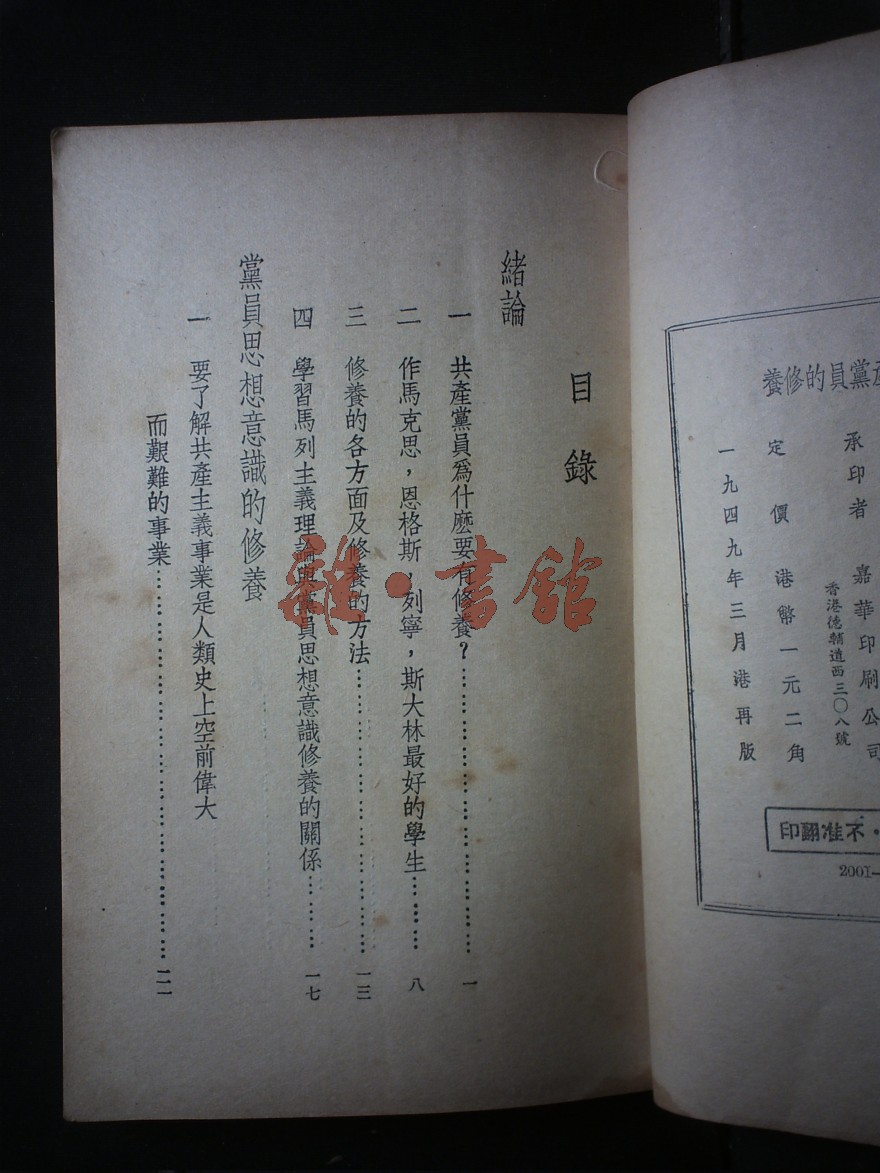 養修的員黨產
承印者 嘉華印刷公司
香港德輔道西三〇八號
定價港幣一元二角
一九四九年三月港再版
印翻准不・
2001—
目錄
緒論
一 共產黨員爲什麼要有修養？…………………………一
二 作馬克思，恩格斯，列寧，斯大林最好的學生………八
三 修養的各方面及修養的方法…………………………一三
四 學習馬列主義理論與黨員思想意識修養的關係………一七
黨員思想意識的修養
一 要了解共產主義事業是人類史上空前偉大
而艱難的事業…………………………………………二一
雜・書館